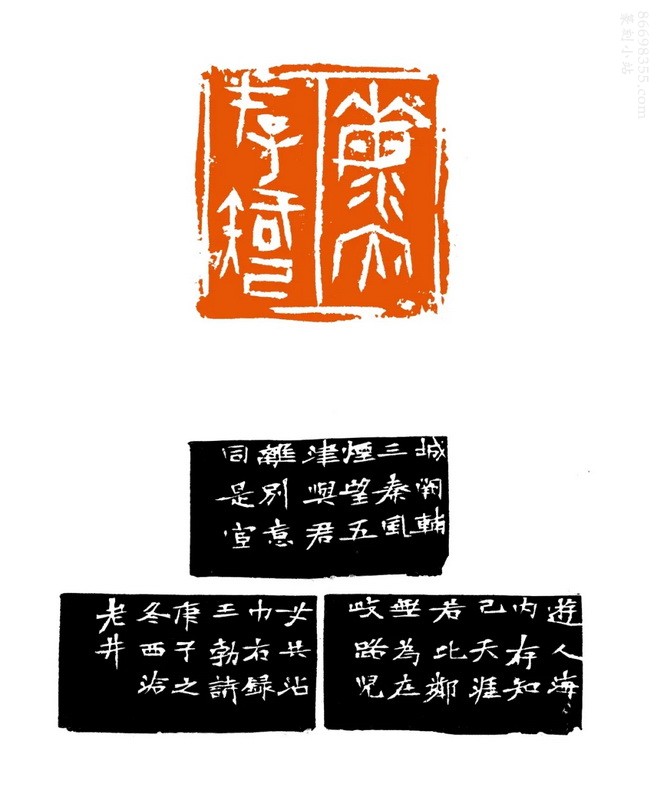 海内
存知己
城闕輔
三秦風
煙望五
津與君
離別意
同是宦
遊人海
内存知
己天涯
若比鄰
無為在
歧路兒
女共沾
巾右録
王勃詩
庚子之
冬西泠
老井
86698355.com
篆刻小站